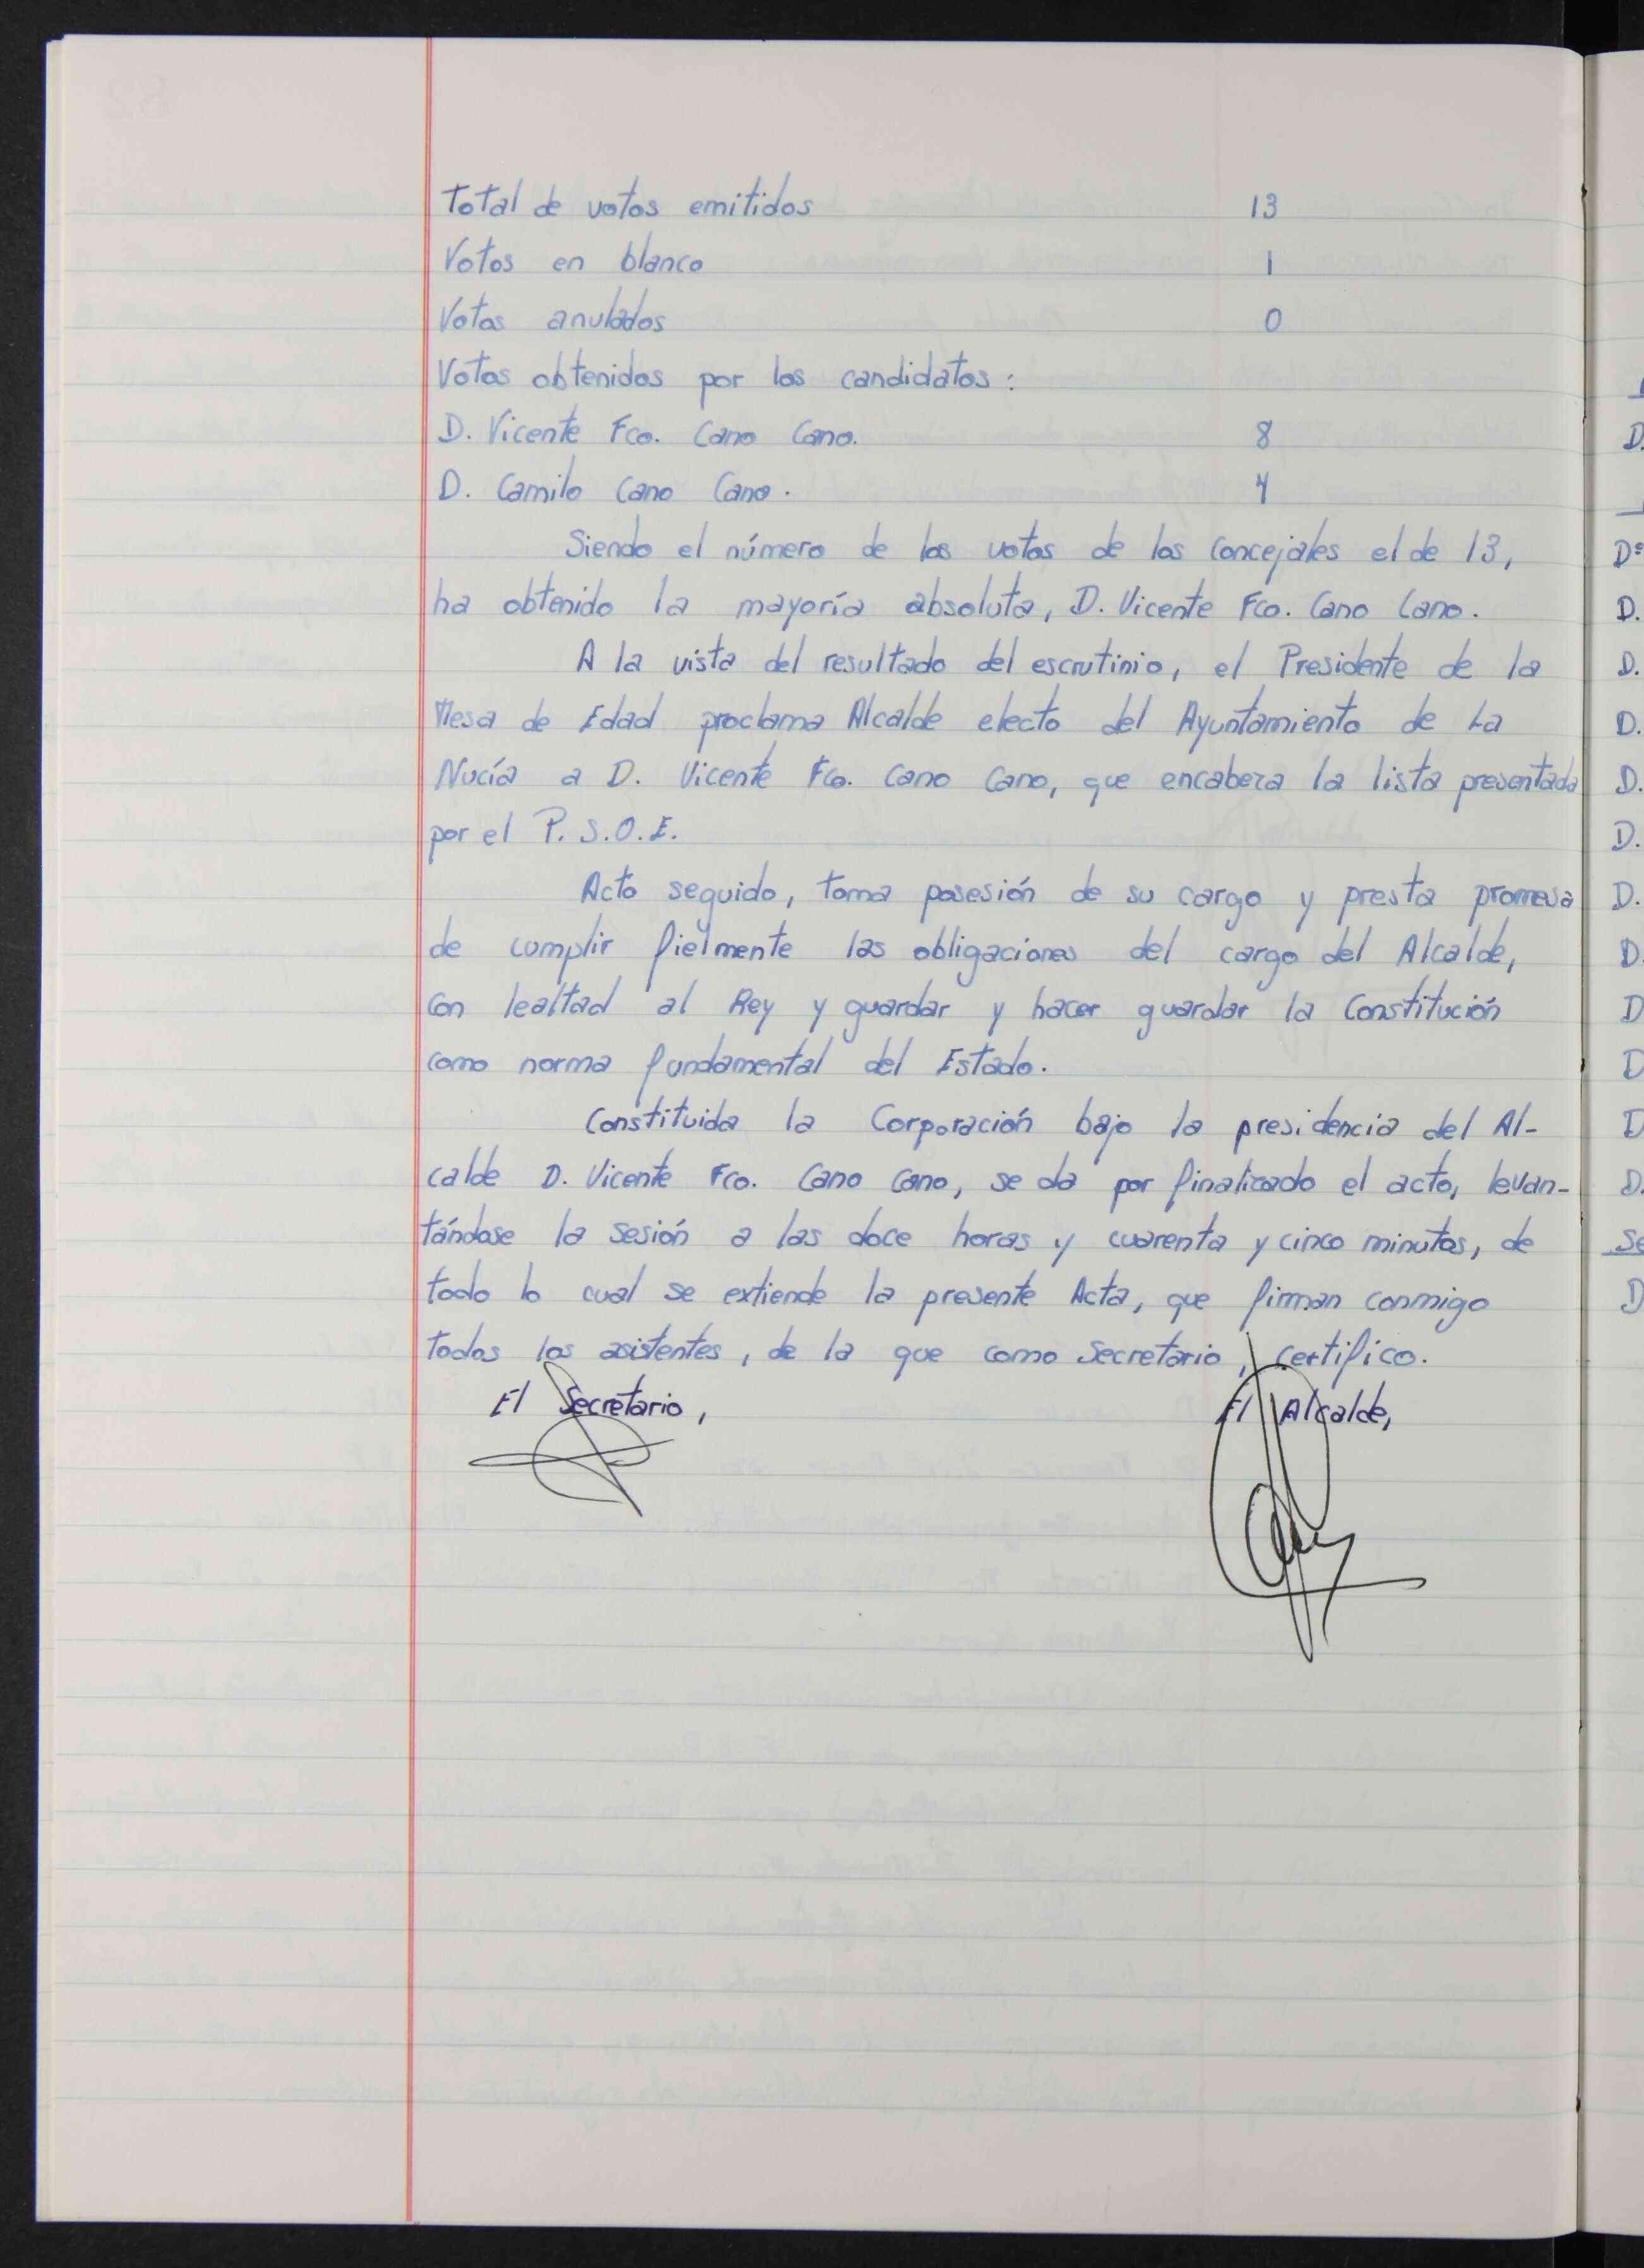 Total de votos emitidos 13
Votos en blanco 1
Votos anulados 0
Votos obtenidos por los candidatos:
D. Vicente Fco. Cano Cano. 8
D. Camilo Cano Cano. 4
Siendo el número de los votos de los Concejales el de 13,
ha obtenido la mayoría absoluta, D. Vicente Fco. Cano Cano.
A la vista del resultado del escrutinio, el Presidente de la
Mesa de Edad proclama Alcalde electo del Ayuntamiento de La
Nucía a D. Vicente Fco. Cano Cano, que encabeza la lista presentada
por el P.S.O.E.
Acto seguido, toma posesión de su cargo y presta promesa
de cumplir fielmente las obligaciones del cargo del Alcalde,
con lealtad al Rey y guardar y hacer guardar la Constitución
como norma fundamental del Estado.
Constituida la Corporación bajo la presidencia del Al-
calde D. Vicente Fco. Cano Cano, se da por finalizado el acto, levan-
tándose la sesión a las doce horas y cuarenta y cinco minutos, de
todo lo cual se extiende la presente Acta, que firman conmigo
todos los asistentes, de la que como Secretario, certifico.
El Secretario, El Alcalde,